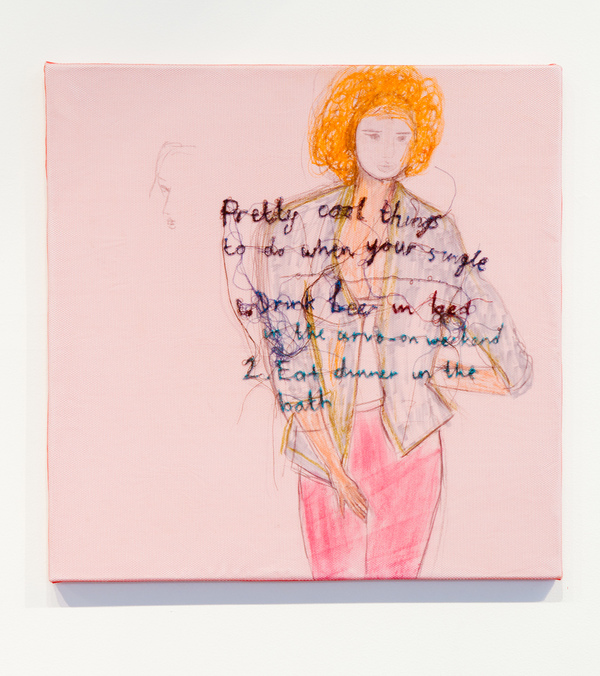 Pretty cool things
to do when your single
Drink beer in bed
in the arvo-on weekend
2. Eat dinner in the
bath